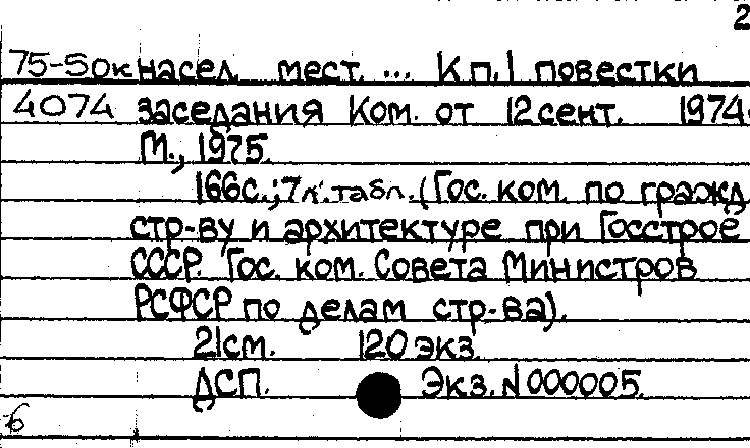 2
75-50к насел. мест. ... К п. 1 повестки
4074 заседания Ком. от 12 сент. 1974.
М., 1975.
166с.; 7 л. табл. (Гос. ком. по гражд.
стр-ву и архитектуре при Госстрое
СССР. Гос. ком. Совета Министров
РСФСР по делам стр-ва).
21см. 120 экз.
ДСП. Экз. N 000005.
б